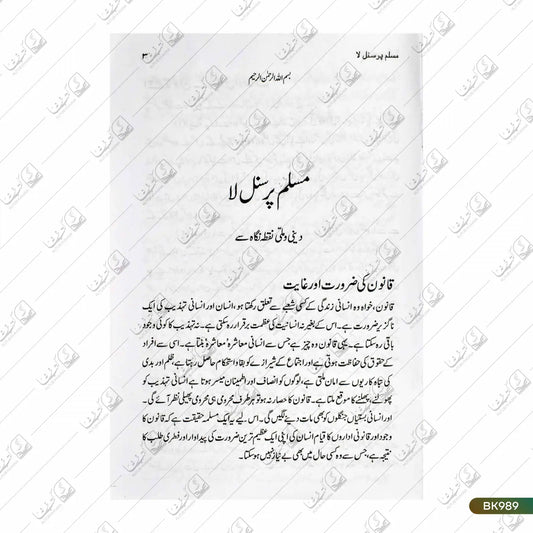 مسلم پرسنل لا
۳
بسم اللہ الرحمٰن الرحیم
مسلم پرسنل لا
دینی و ملی نقطہ نگاہ سے
قانون کی ضرورت اور غایت
قانون، خواہ وہ انسانی زندگی کے کسی شعبے سے تعلق رکھتا ہو، انسان اور انسانی تہذیب کی ایک
ناگزیر ضرورت ہے۔ اس کے بغیر نہ انسانیت کی عظمت برقرار رہ سکتی ہے۔ نہ تہذیب کا کوئی وجود
باقی رہ سکتا ہے۔ یہی قانون وہ چیز ہے جس سے انسانی معاشرہ ’معاشرہ‘ بنتا ہے۔ اسی سے افراد
کے حقوق کی حفاظت ہوتی ہے اور اجتماع کے شیرازے کو بقا و استحکام حاصل رہتا ہے، ظلم اور بدی
کی تباہ کاریوں سے امان ملتی ہے، لوگوں کو انصاف اور اطمینان میسر ہوتا ہے انسانی تہذیب کو
پھولنے، پھلنے کا موقع ملتا ہے۔ قانون کا حصار نہ ہو تو ہر طرف محرومی ہی محرومی پھیلی نظر آئے گی۔
اور انسانی بستیاں جنگلوں کو بھی مات دینے لگیں گی۔ اس لیے یہ ایک مسلمہ حقیقت ہے کہ قانون کا
وجود اور قانونی اداروں کا قیام انسان کی اپنی ایک عظیم ترین ضرورت کی پیداوار اور فطری طلب کا
نتیجہ ہے، جس سے وہ کسی حال میں بھی بے نیاز نہیں ہو سکتا۔
BK989